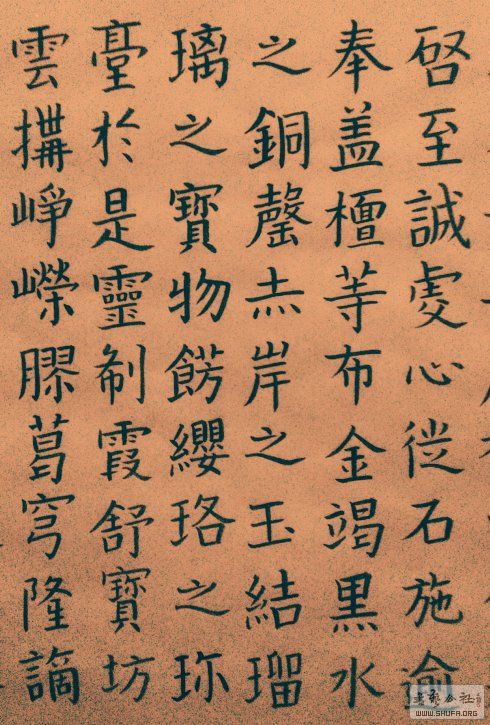 啓至誠虔心從石施逾
奉盖檀等布金竭黑水
之銅罄赤岸之玉結瑠
璃之寶物餝纓珞之珎
臺於是靈刹霞舒寶坊
雲搆崢嶸膠葛穹隆謫
WWW.SHUFA.ORG